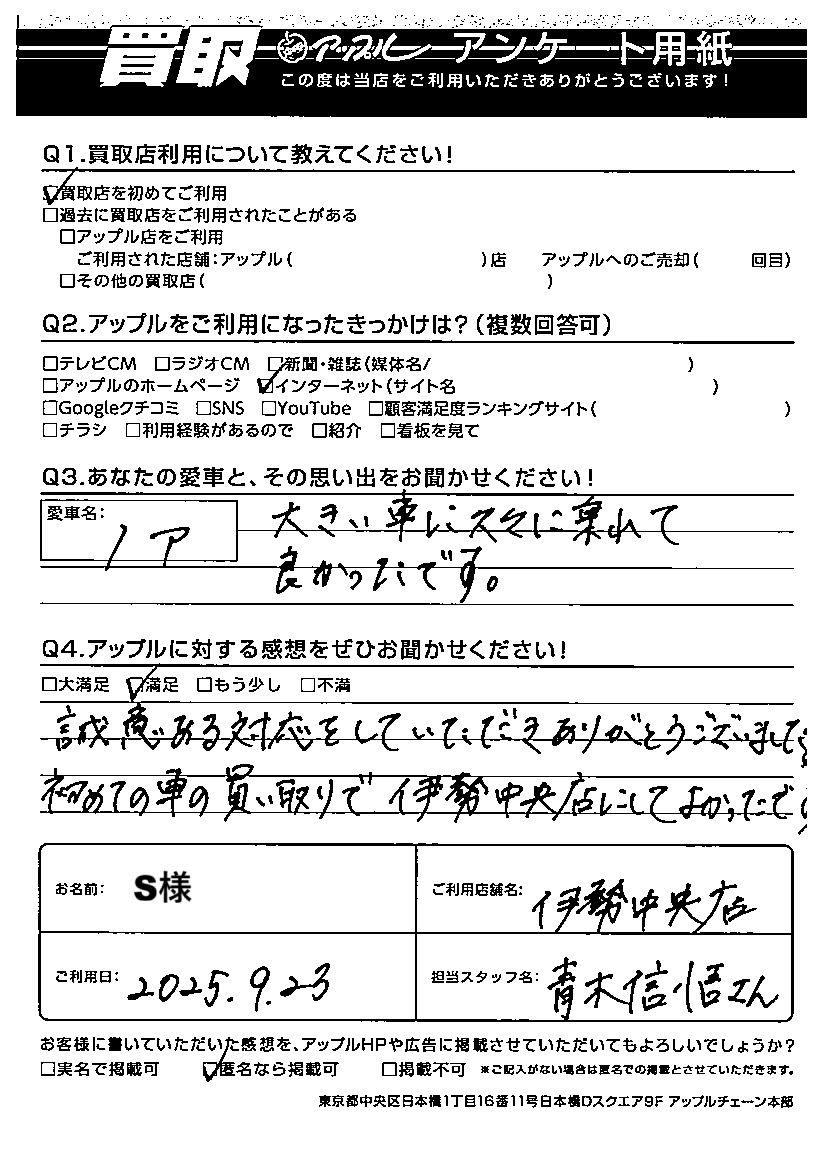 買取 アップル アンケート用紙
この度は当店をご利用いただきありがとうございます!
Q1.買取店利用について教えてください!
☑買取店を初めてご利用
□過去に買取店をご利用されたことがある
□アップル店をご利用
ご利用された店舗:アップル( )店 アップルへのご売却( 回目)
□その他の買取店( )
Q2.アップルをご利用になったきっかけは?(複数回答可)
□テレビCM □ラジオCM □新聞・雑誌(媒体名/ )
□アップルのホームページ ☑インターネット(サイト名 )
□Googleクチコミ □SNS □YouTube □顧客満足度ランキングサイト( )
□チラシ □利用経験があるので □紹介 □看板を見て
Q3.あなたの愛車と、その思い出をお聞かせください!
愛車名: ノア
大きい車に久々に乗れて
良かったです。
Q4.アップルに対する感想をぜひお聞かせください!
□大満足 ☑満足 □もう少し □不満
誠意ある対応をしていただきありがとうございました
初めての車の買い取りで伊勢中央店にしてよかったです
お名前: S様 ご利用店舗名: 伊勢中央店
ご利用日: 2025.9.23 担当スタッフ名: 青木信悟さん
お客様に書いていただいた感想を、アップルHPや広告に掲載させていただいてもよろしいでしょうか?
□実名で掲載可 ☑匿名なら掲載可 □掲載不可 ※ご記入がない場合は匿名での掲載とさせていただきます。
東京都中央区日本橋1丁目16番11号日本橋Dスクエア9F アップルチェーン本部